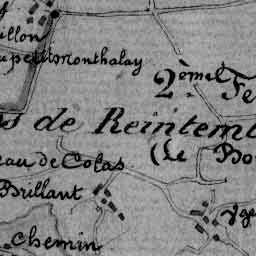 illon
petitmonthalay
2ème Fe
s de Reintem
eau de Colas
(Le Bo
Brillant
chemin